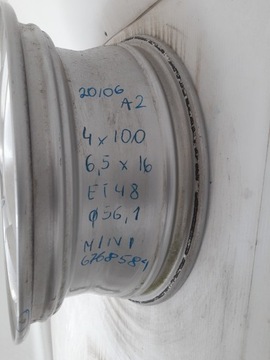 20106
A2
4x100
6,5 x 16
ET 48
φ56,1
MINI
6768584